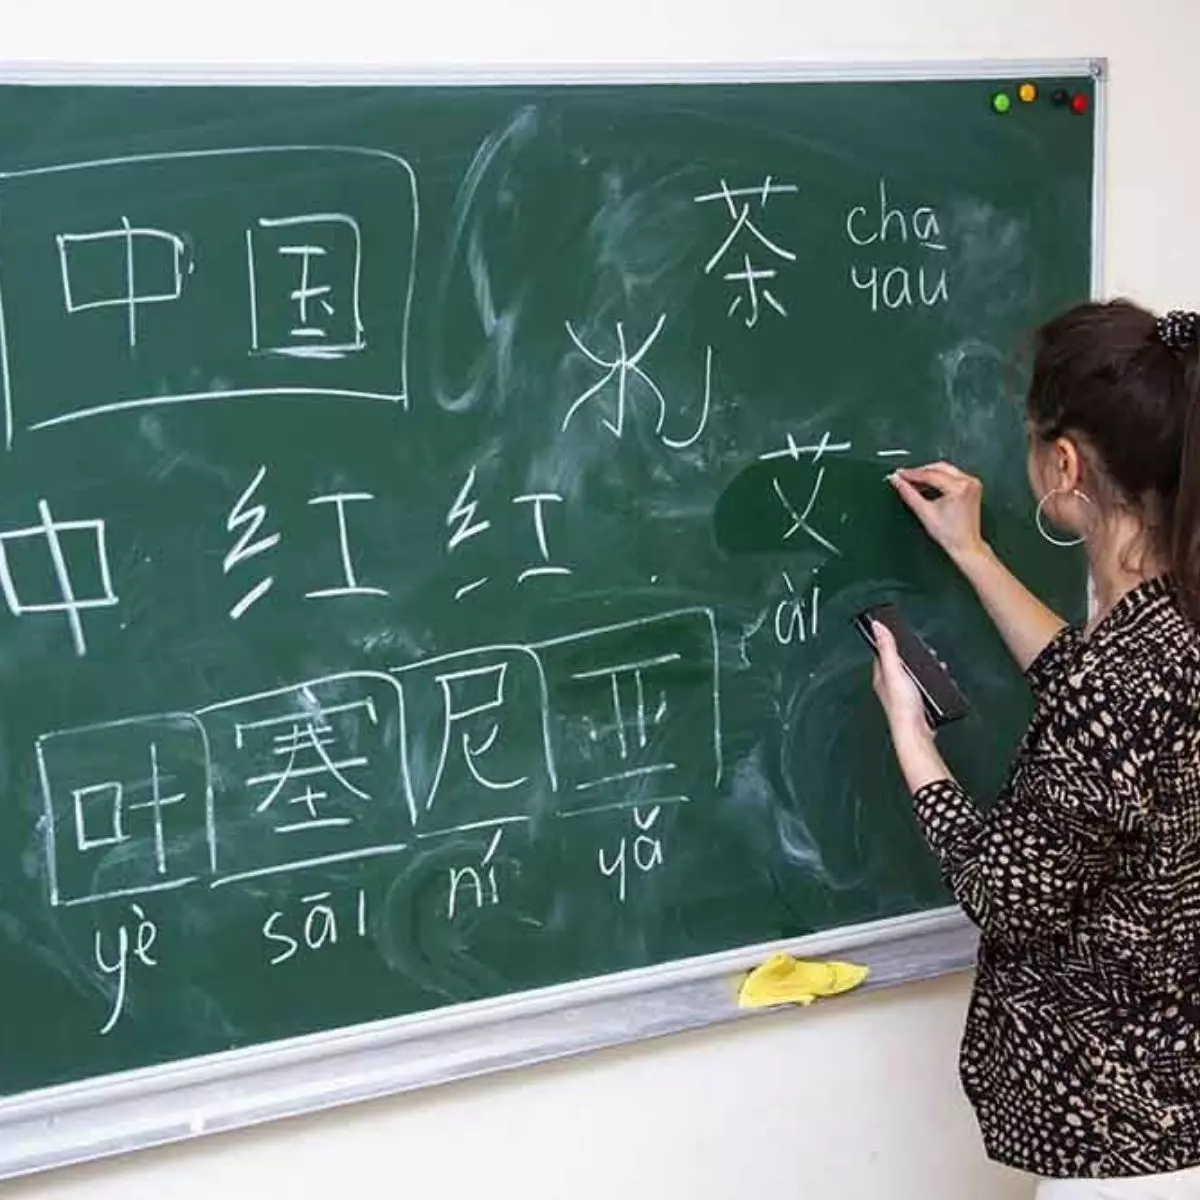 中国
茶 cha
чаи
艾
中 红 红
ài
叶塞尼亚
yè sāi ní yǎ